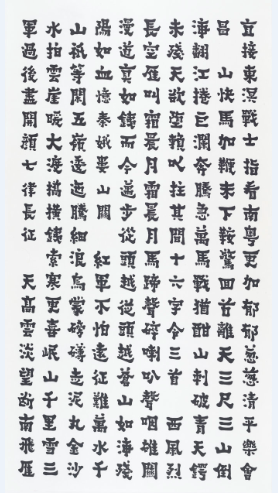 直接東溟戰士指看南粵更加郁郁蔥蔥清平樂會
昌 山快馬加鞭未下鞍驚回首離天三尺三山倒
海翻江捲巨瀾奔騰急萬馬戰猶酣山刺破青天鍔
未殘天欲墮賴以拄其間十六字令三首 西風烈
長空雁叫霜晨月霜晨月馬蹄聲碎喇叭聲咽雄關
漫道真如鐵而今邁步從頭越從頭越蒼山如海殘
陽如血憶秦娥婁山關 紅軍不怕遠征難萬水千
山祇等閑五嶺逶迤騰細浪烏蒙磅礴走泥丸金沙
水拍雲崖暖大渡橋橫鐵索寒更喜岷山千里雪三
軍過後盡開顏七律長征 天高雲淡望斷南飛雁